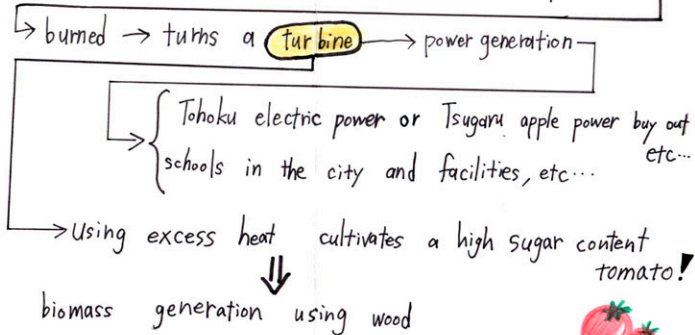 burned → turns a turbine → power generation
Tohoku electric power or Tsugaru apple power buy out
etc...
schools in the city and facilities, etc...
Using excess heat cultivates a high sugar content
tomato!
biomass generation using wood